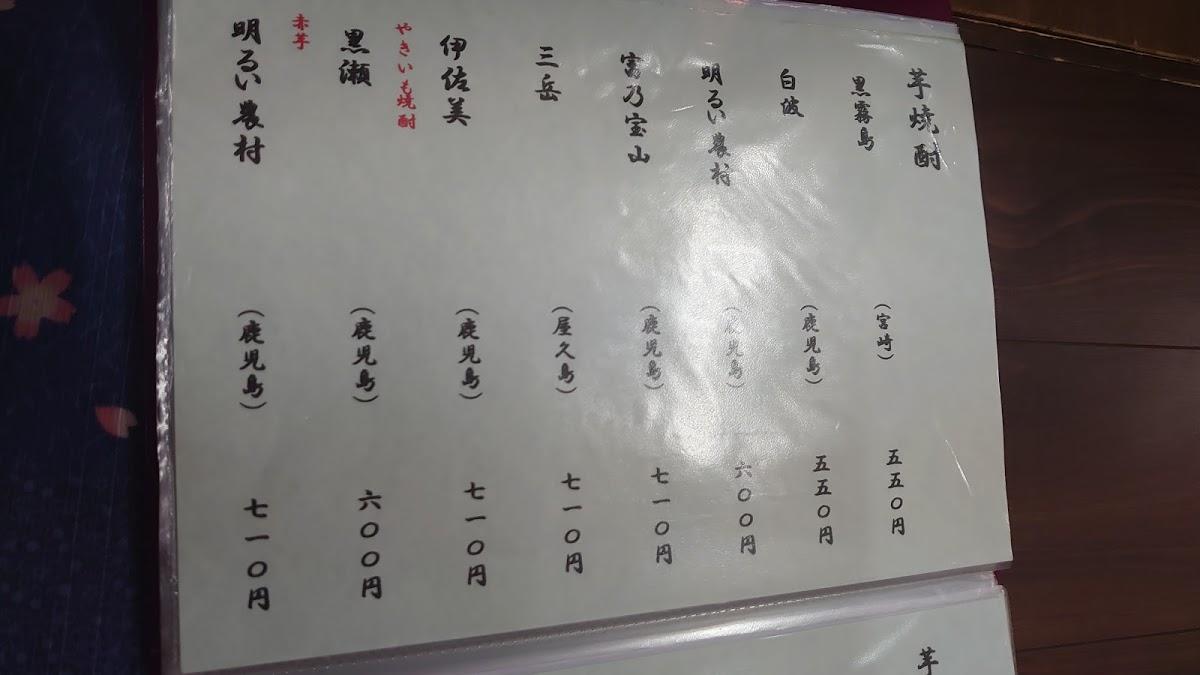 芋焼酎
黒霧島 (宮崎) 五五〇円
白波 (鹿児島) 五五〇円
明るい農村 (鹿児島) 六〇〇円
富乃宝山 (鹿児島) 七一〇円
三岳 (屋久島) 七一〇円
伊佐美 (鹿児島) 七一〇円
やきいも焼酎
黒瀬 (鹿児島) 六〇〇円
赤芋
明るい農村 (鹿児島) 七一〇円
芋